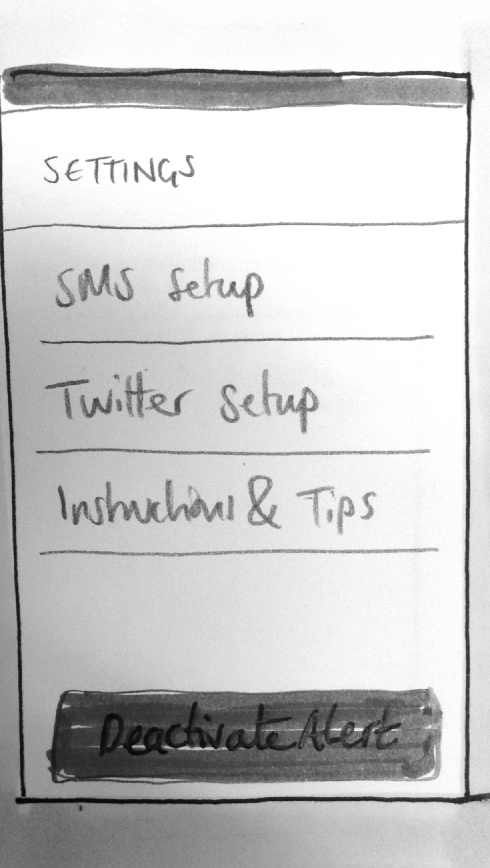 SETTINGS
SMS Setup
Twitter Setup
Instructions & Tips
Deactivate Alert